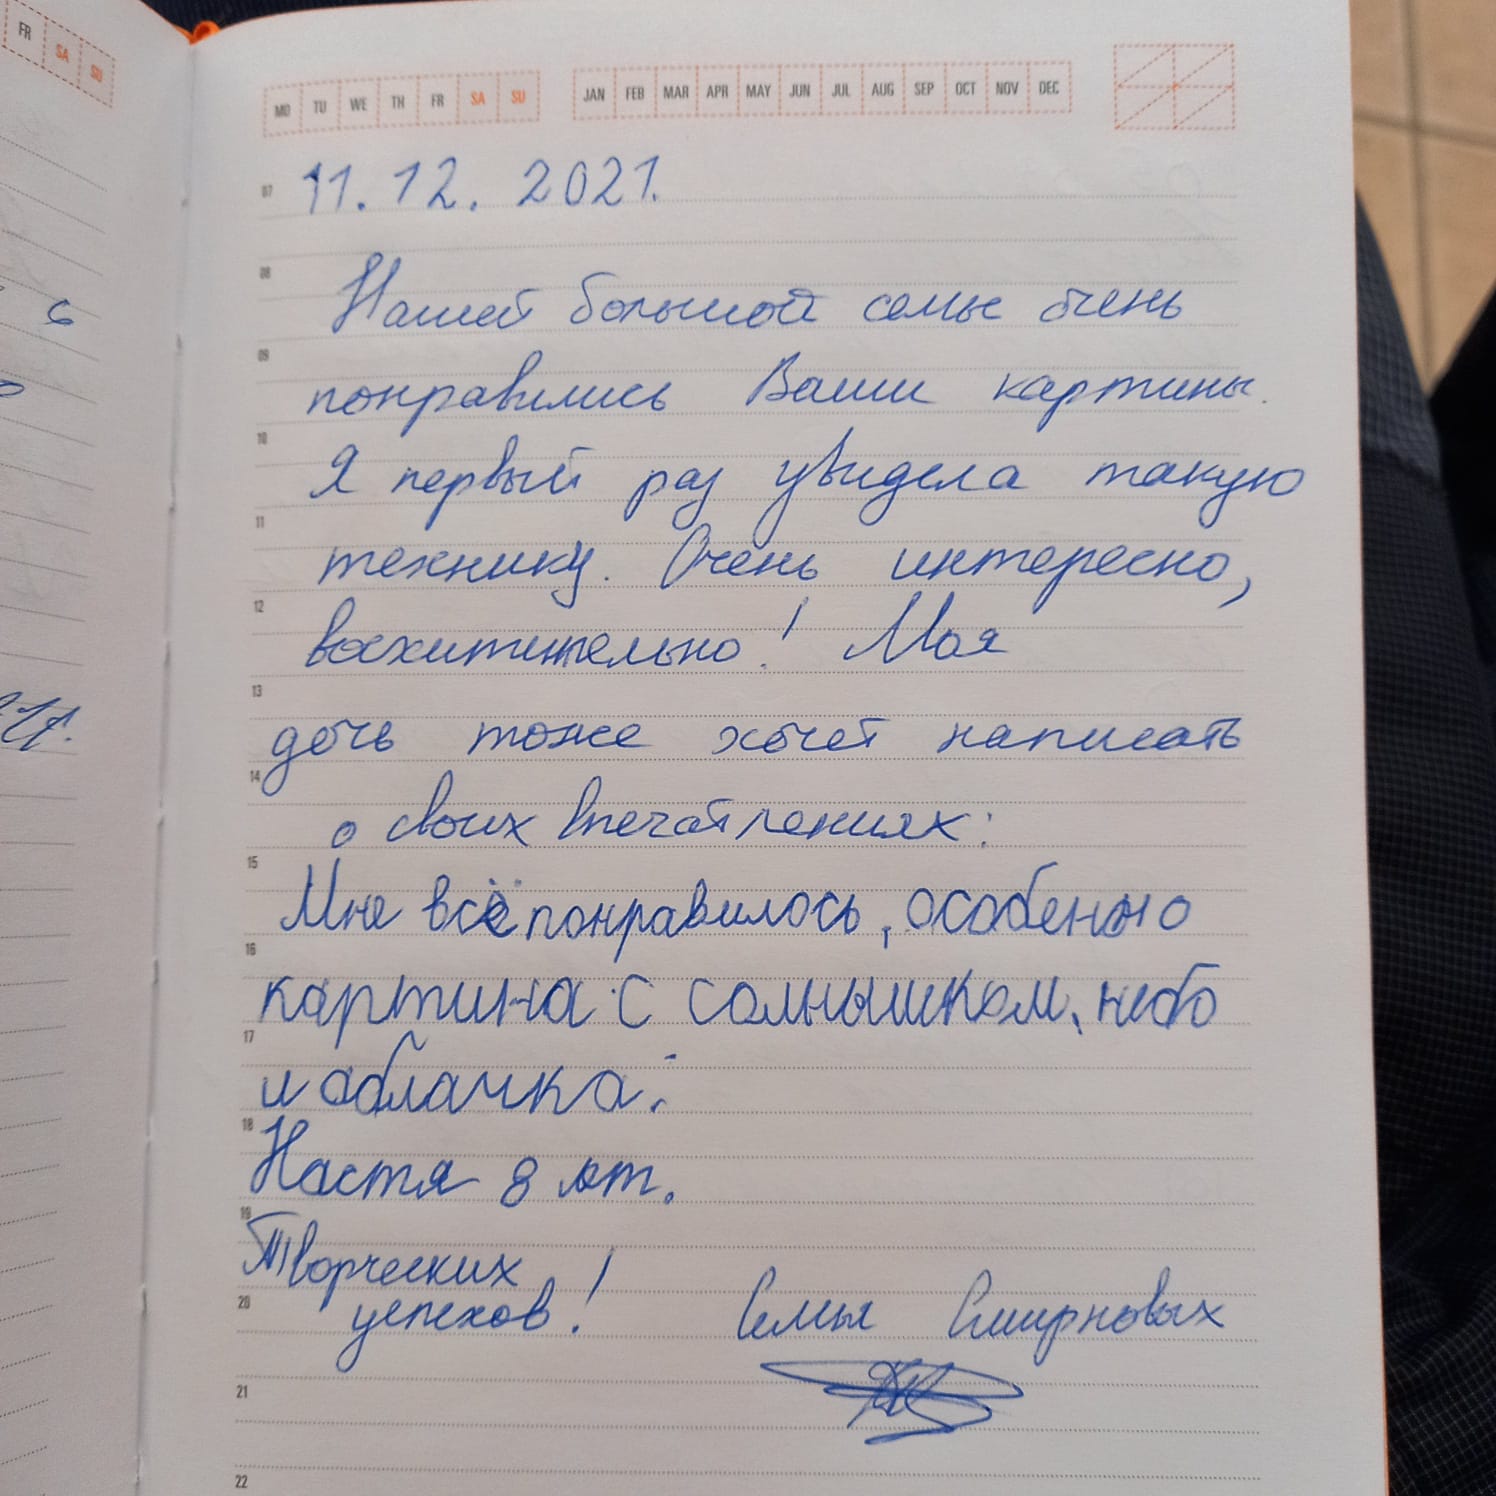 FR SA SU
MO TU WE TH FR SA SU JAN FEB MAR APR MAY JUN JUL AUG SEP OCT NOV DEC
07 11.12.2021.
08
Нашей большой семье очень
09
понравились Ваши картины.
10
Я первый раз увидела такую
11
технику. Очень интересно,
12
восхитительно! Моя
13
дочь тоже хочет написать
14
о своих впечатлениях:
15
Мне всё понравилось, особенно
16
картина с солнышком, небо
17
и облачка.
18
Настя 8 лет.
19
Творческих
20
успехов! Семья Смирновых
21
22